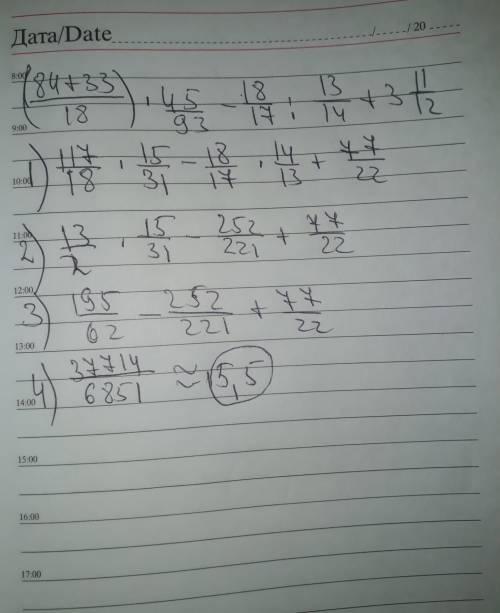 Дата/Date / / 20
8:00 (84+33)/18 · 45/93 - 18/17 : 13/14 + 3 11/12
9:00
1) 117/18 · 15/31 - 18/17 · 14/13 + 77/22
10:00
11:00
2) 13/2 · 15/31 - 252/221 + 77/22
12:00
3) 195/62 - 252/221 + 77/22
13:00
4) 37714/6851 ≈ 5,5
14:00
15:00
16:00
17:00